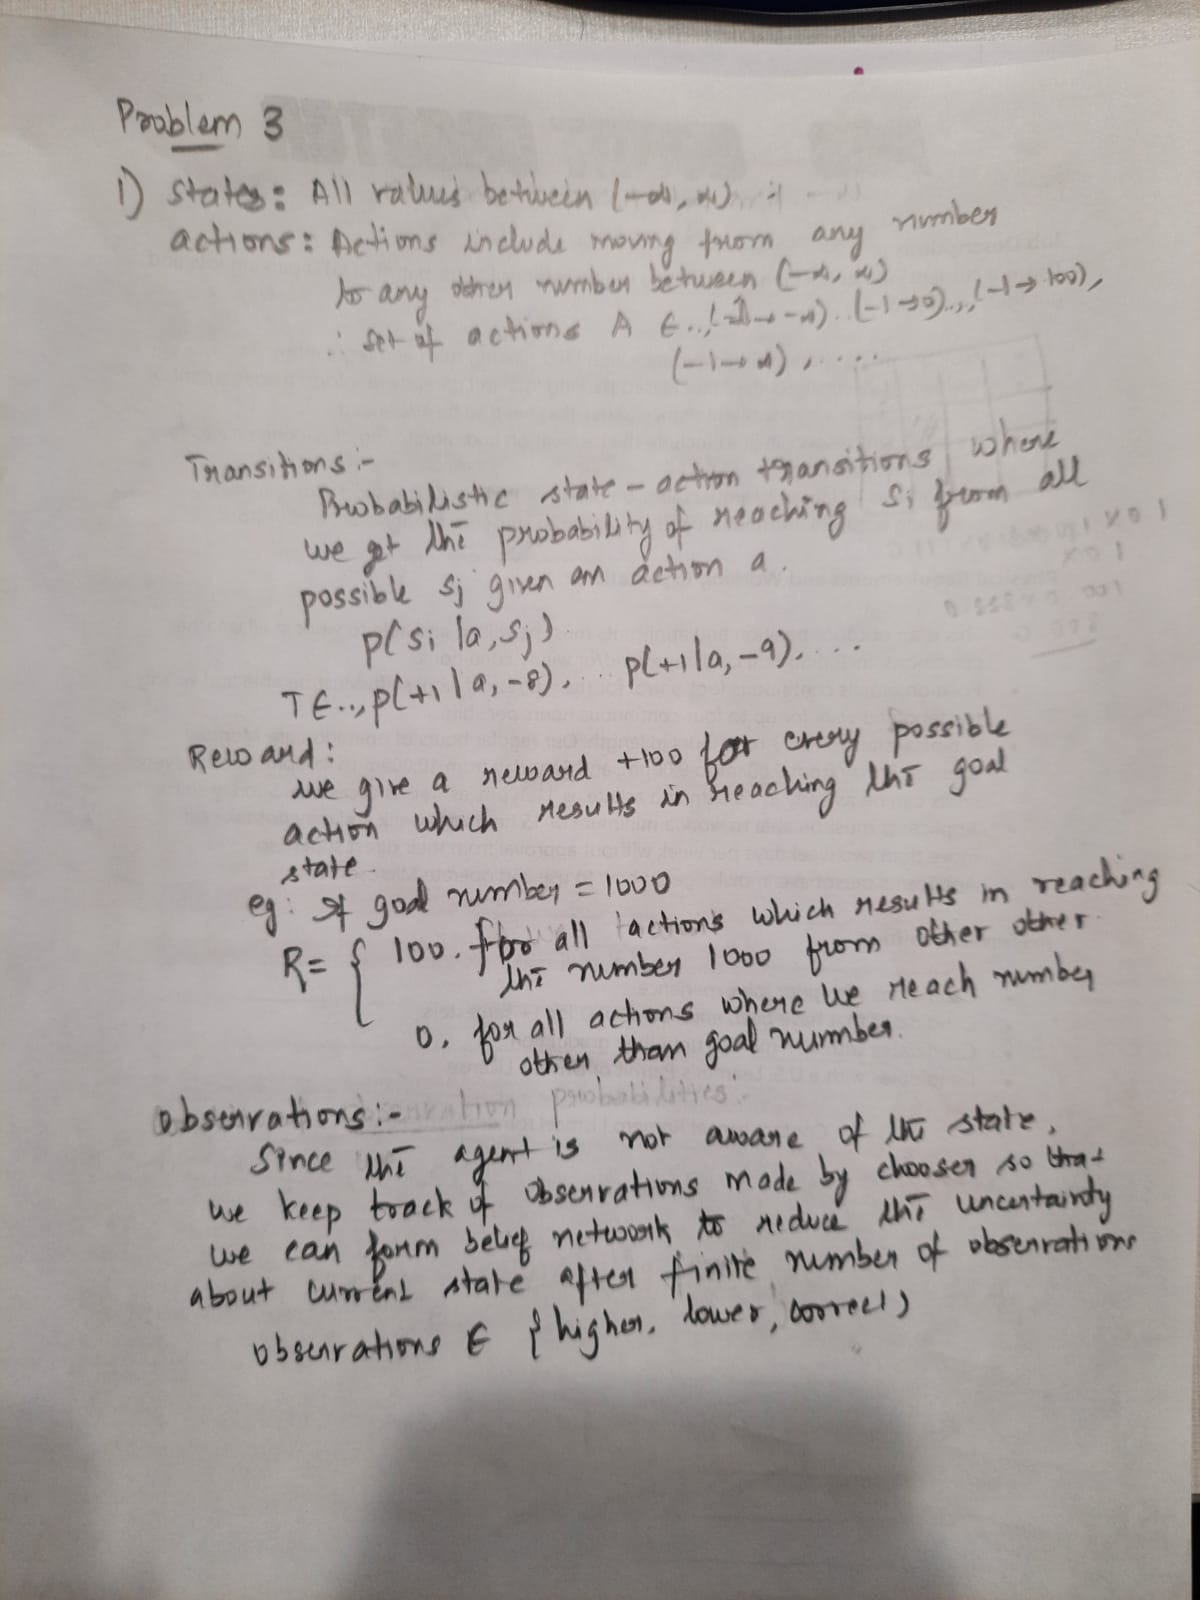 Problem 3
1) States: All values between (-∞, ∞)
actions: Actions include moving from any number
to any other number between (-∞, ∞)
∴ set of actions A ∈ .., (-1→-∞)..(-1→0)..,(-1→100),
(-1→∞), ....
Transitions:-
Probabilistic state-action transitions where
we get the probability of reaching Si from all
possible sj given an action a.
p(si | a, sj)
T ∈ .., p(+1 | a, -8), .. p(+1 | a, -9), ...
Reward:
we give a reward +100 for every possible
action which results in reaching the goal
state.
eg: If goal number = 1000
R= { 100. for all actions which results in reaching
the number 1000 from other other
0, for all actions where we reach number
other than goal number.
Observations:-
Since the agent is not aware of the state,
we keep track of observations made by chooser so that
we can form belief network to reduce the uncertainty
about current state after finite number of observations
observations ∈ { higher, lower, correct }